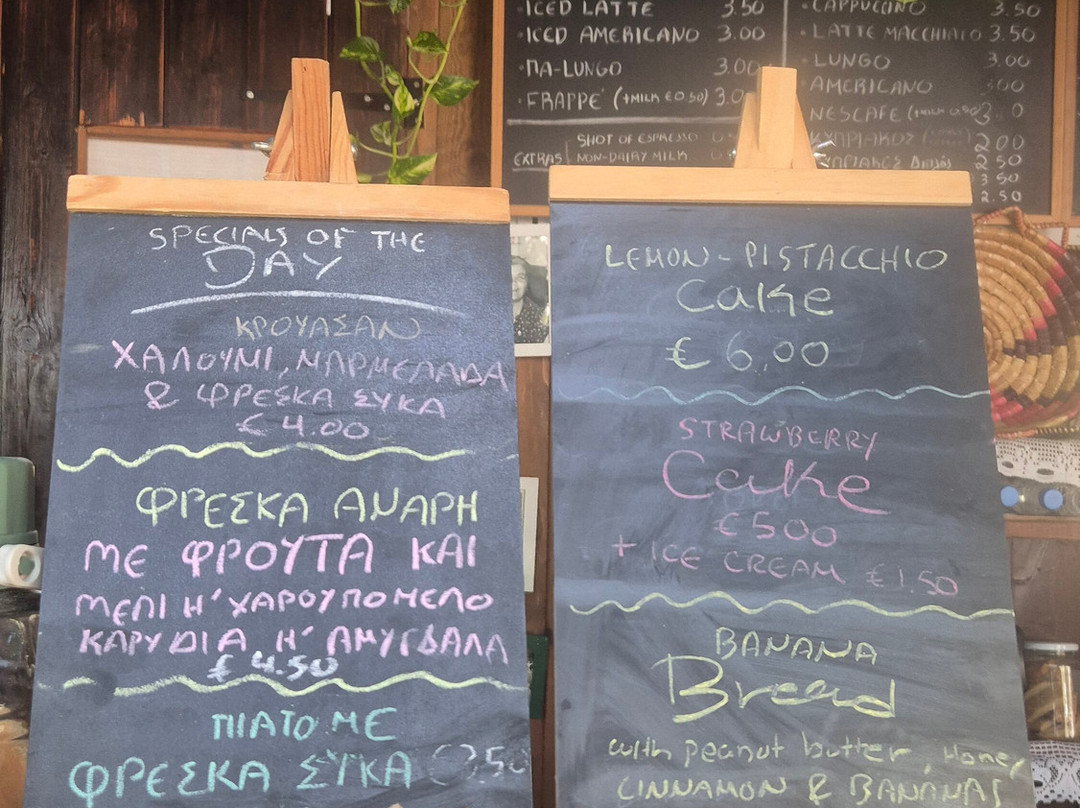 · ICED LATTE 3.50
· ICED AMERICANO 3.00
· ΠΑ-LUNGO 3.00
· FRAPPE' (+MILK €0.50) 3.0
EXTRAS
SHOT OF ESPRESSO
NON-DAIRY MILK
· CAPPUCCINO 3.50
· LATTE MACCHIATO 3.50
· LUNGO 3.00
· AMERICANO 3.00
NESCAFE (+MILK 0.50) 3.0
ΚΥΠΡΙΑΚΟΣ 2.00
ΚΥΠΡΙΑΚΟΣ Διπλός 2.50
3.50
2.50
SPECIALS OF THE
DAY
ΚΡΟΥΑΣΑΝ
ΧΑΛΟΥΜΙ, ΜΑΡΜΕΛΑΔΑ
& ΦΡΕΣΚΑ ΣΥΚΑ
€ 4.00
ΦΡΕΣΚΑ ΑΝΑΡΗ
ΜΕ ΦΡΟΥΤΑ ΚΑΙ
ΜΕΛΙ Η' ΧΑΡΟΥΠΟΜΕΛΟ
ΚΑΡΥΔΙΑ Η' ΑΜΥΓΔΑΛΑ
€ 4.50
ΠΙΑΤΟ ΜΕ
ΦΡΕΣΚΑ ΣΥΚΑ €3.50
LEMON - PISTACCHIO
Cake
€ 6.00
STRAWBERRY
Cake
€500
+ ICE CREAM €1.50
BANANA
Bread
with peanut butter, Honey
CINNAMON & BANANAS